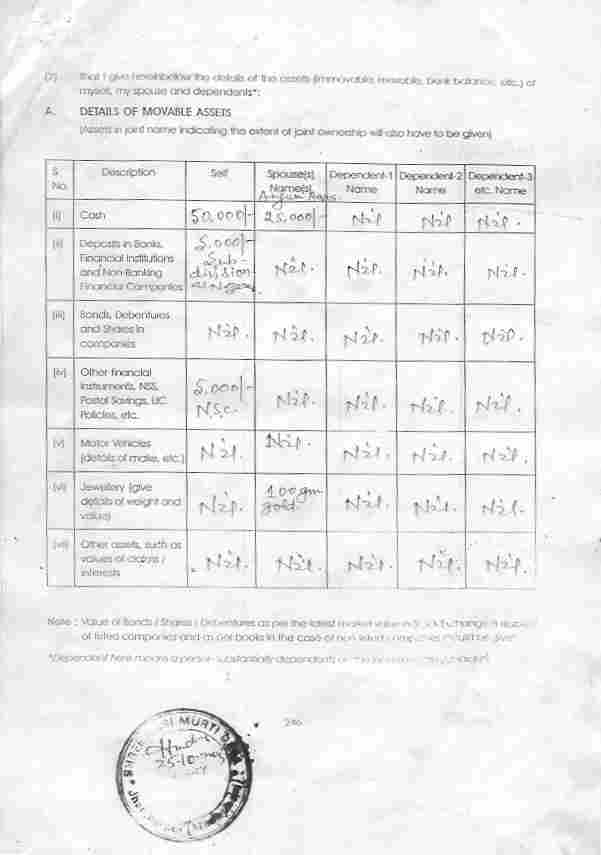 (2) that I give hereinbelow the details of the assets (immovable, movable, bank balance, etc.) of
myself, my spouse and dependents*:
A. DETAILS OF MOVABLE ASSETS
(Assets in joint name indicating the extent of joint ownership will also have to be given)
S. No. Description Self Spouse(s) Name(s) Dependent-1 Name Dependent-2 Name Dependent-3 etc. Name
(i) Cash 50,000/- 25,000/- Nil Nil Nil.
(ii) Deposits in Banks, Financial Institutions and Non-Banking Financial Companies 5,000/- Sub-division Nil. Nil. Nil. Nil.
(iii) Bonds, Debentures and Shares in companies Nil. Nil. Nil. Nil. Nil.
(iv) Other financial instruments, NSS, Postal Savings, LIC Policies, etc. 5,000/- NSC. Nil. Nil. Nil. Nil.
(v) Motor Vehicles (details of make, etc.) Nil. Nil. Nil. Nil. Nil.
(vi) Jewellery (give details of weight and value) Nil. 100gm gold. Nil. Nil. Nil.
(vii) Other assets, such as values of claims / interests Nil. Nil. Nil. Nil. Nil.
Note : Value of Bonds / Shares / Debentures as per the latest market value in Stock Exchange in respect
of listed companies and as per books in the case of non listed companies should be given
*Dependent here means a person substantially dependents on the income of the
MURTI
25-10-